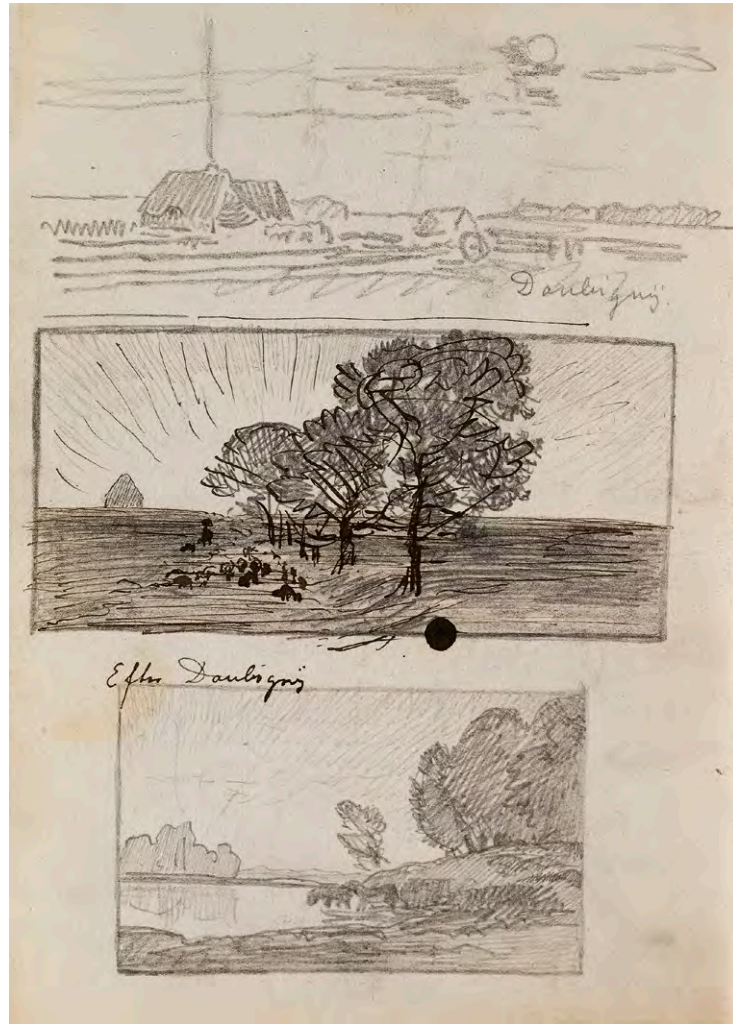 Daubigny.
Efter Daubigny